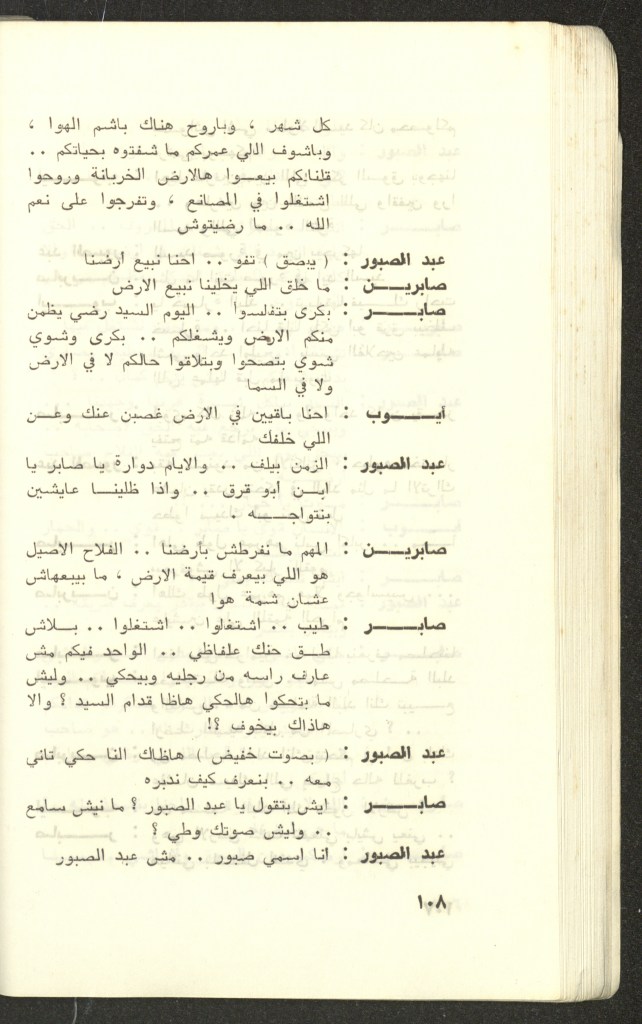 كل شهر ، وباروح هناك باشم الهوا ،
وباشوف اللي عمركم ما شفتوه بحياتكم ..
قلنالكم بيعـــوا هالارض الخربانة وروحوا
اشتغلوا في المصانع ، وتفرجوا على نعم
الله .. ما رضيتوش
عبد الصبور : ( يبصق ) تفو .. احنا نبيع ارضنا
صابريــــن : ما خلق اللي يخلينا نبيع الارض
صابـــــــر : بكرى بتفلسوا .. اليوم السيد رضي يظمن
منكم الارض ويشغلكم .. بكرى وشوي
شوي بتصحوا وبتلاقوا حالكم لا في الارض
ولا في السما
أيـــــــوب : احنا باقيين في الارض غصبن عنك وعـــن
اللي خلفك
عبد الصبور : الزمن بيلف .. والايام دوارة يا صابر يا
ابـــن ابو قرق .. واذا ظلينـــا عايشين
بنتواجــــــه .
صابريـــــن : المهم ما نفرطش بأرضنا .. الفلاح الاصيل
هو اللي بيعرف قيمة الارض ، ما بيبعهاش
عشان شمة هوا
صابـــــــر : طيب .. اشتغلوا .. اشتغلوا .. بـــلاش
طـــق حنك علفاظي .. الواحد فيكم مش
عارف راسه من رجليه وبيحكي .. وليش
ما بتحكوا هالحكي هاظا قدام السيد ؟ والا
هاذاك بيخوف ؟!
عبد الصبور : ( بصوت خفيض ) هاظاك النا حكي تاني
معه .. بنعرف كيف ندبره
صابـــــــر : ايش بتقول يا عبد الصبور ؟ ما نيش سامع
.. وليش صوتك وطي ؟
عبد الصبور : انا اسمي صبور .. مش عبد الصبور
١٠٨